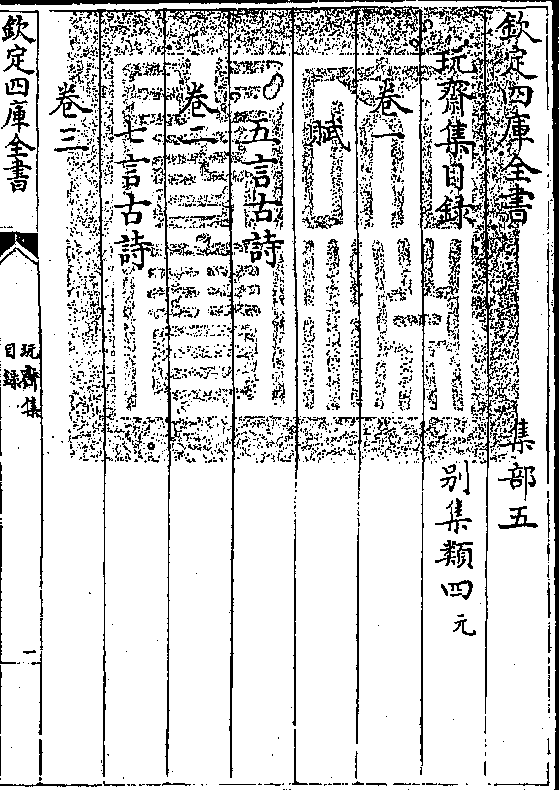 欽定四庫全書　集部五
玩齋集目録　别集類四元
卷一
賦
五言古詩
卷二
七言古詩
卷三
欽定四庫全書
玩齋集
目録
一